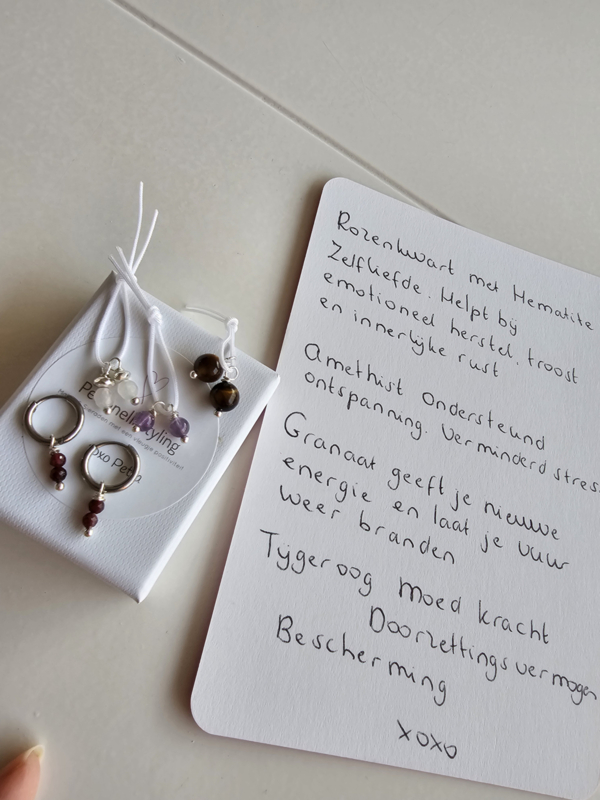 Personal Styling
oxo Petra
Rozenkwart met Hematite
Zelfliefde. Helpt bij
emotioneel herstel, troost
en innerlijke rust
Amethist ondersteund
ontspanning. Verminderd stress
Granaat geeft je nieuwe
energie en laat je vuur
weer branden
Tijgeroog moed kracht
Doorzettingsvermogen
Bescherming
xoxo